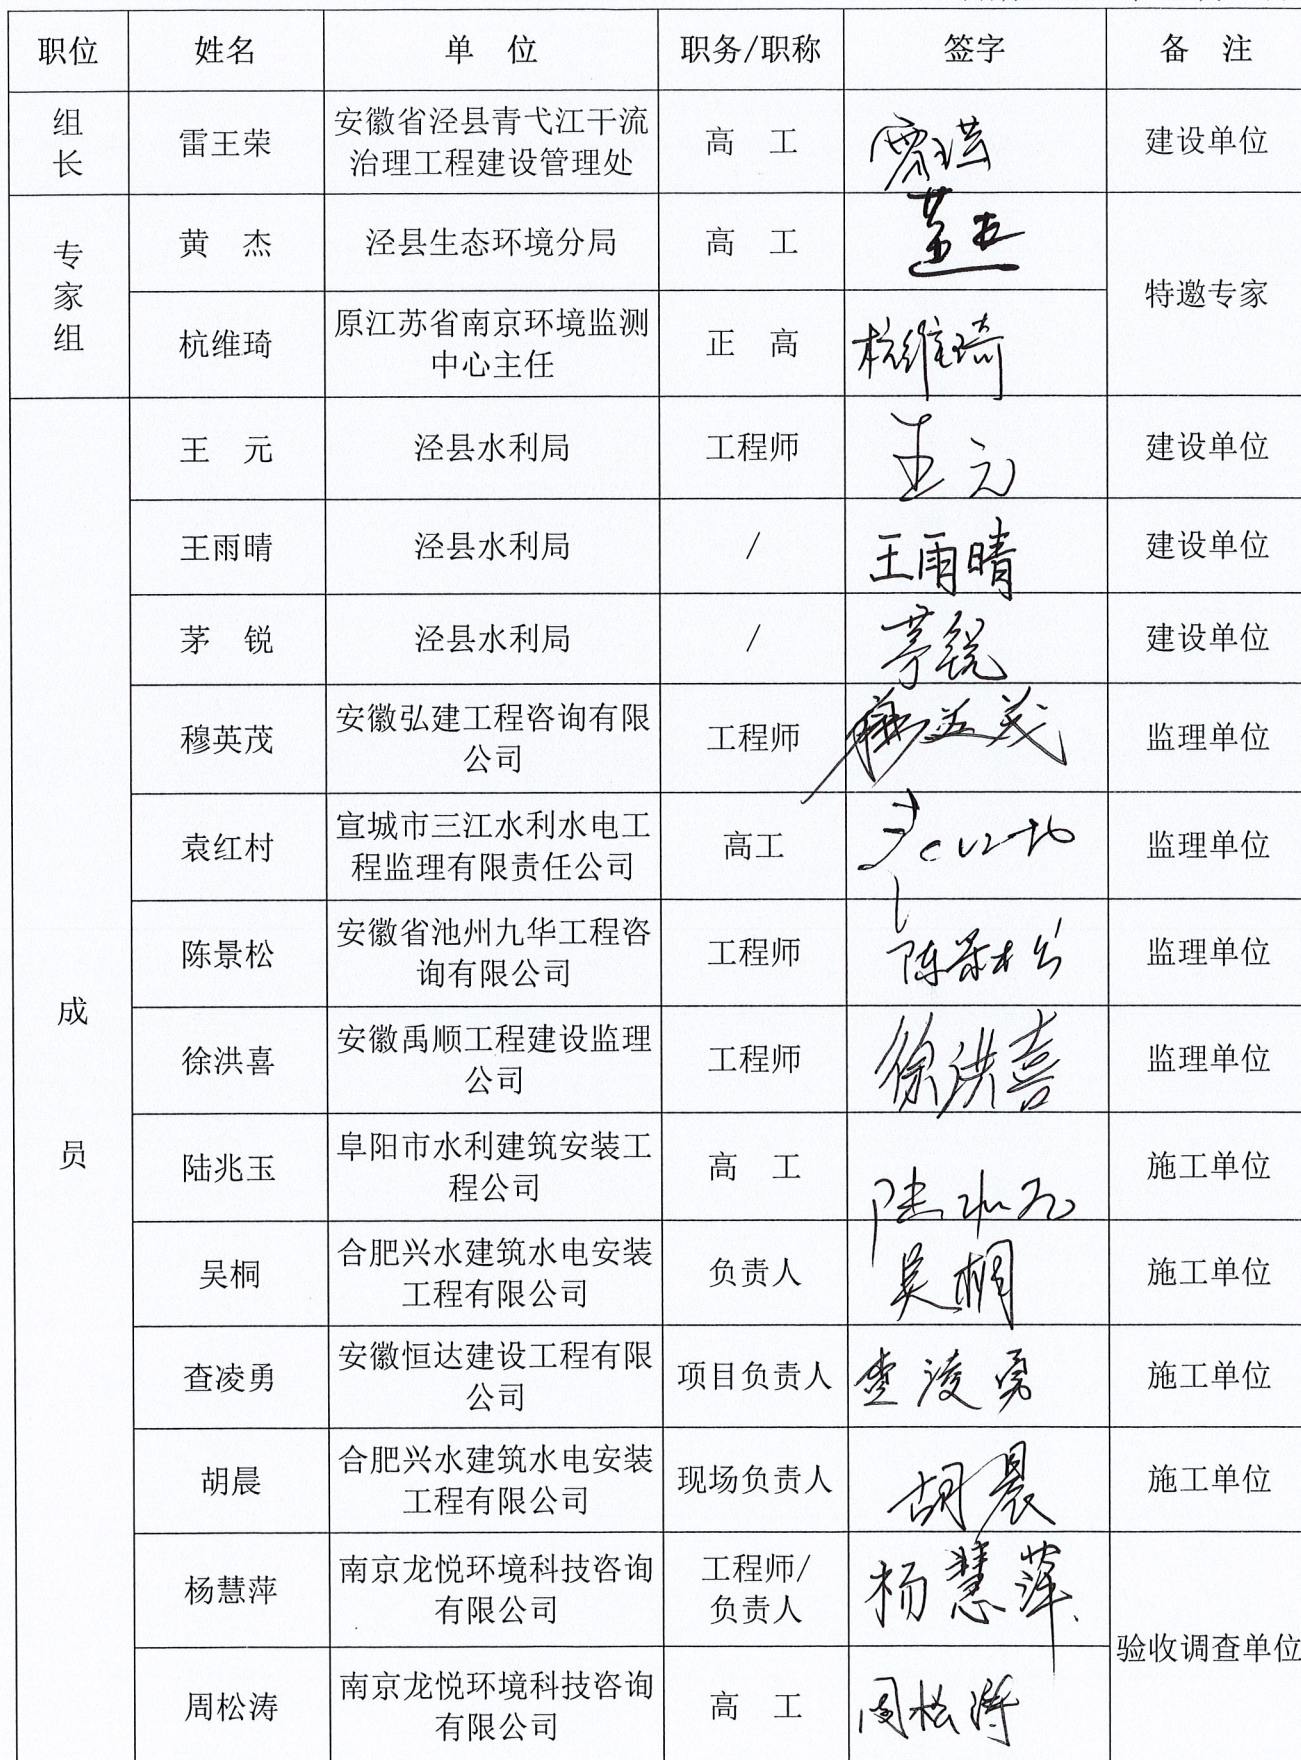 职位 姓名 单 位 职务/职称 签字 备 注
组长 雷王荣 安徽省泾县青弋江干流治理工程建设管理处 高 工 建设单位
专家组 黄 杰 泾县生态环境分局 高 工 特邀专家
杭维琦 原江苏省南京环境监测中心主任 正 高 杭维琦
成员 王 元 泾县水利局 工程师 王元 建设单位
王雨晴 泾县水利局 / 王雨晴 建设单位
茅 锐 泾县水利局 / 茅锐 建设单位
穆英茂 安徽弘建工程咨询有限公司 工程师 穆英茂 监理单位
袁红村 宣城市三江水利水电工程监理有限责任公司 高工 监理单位
陈景松 安徽省池州九华工程咨询有限公司 工程师 陈景松 监理单位
徐洪喜 安徽禹顺工程建设监理公司 工程师 徐洪喜 监理单位
陆兆玉 阜阳市水利建筑安装工程公司 高 工 施工单位
吴桐 合肥兴水建筑水电安装工程有限公司 负责人 吴桐 施工单位
查凌勇 安徽恒达建设工程有限公司 项目负责人 查凌勇 施工单位
胡晨 合肥兴水建筑水电安装工程有限公司 现场负责人 胡晨 施工单位
杨慧萍 南京龙悦环境科技咨询有限公司 工程师/负责人 杨慧萍 验收调查单位
周松涛 南京龙悦环境科技咨询有限公司 高 工 周松涛